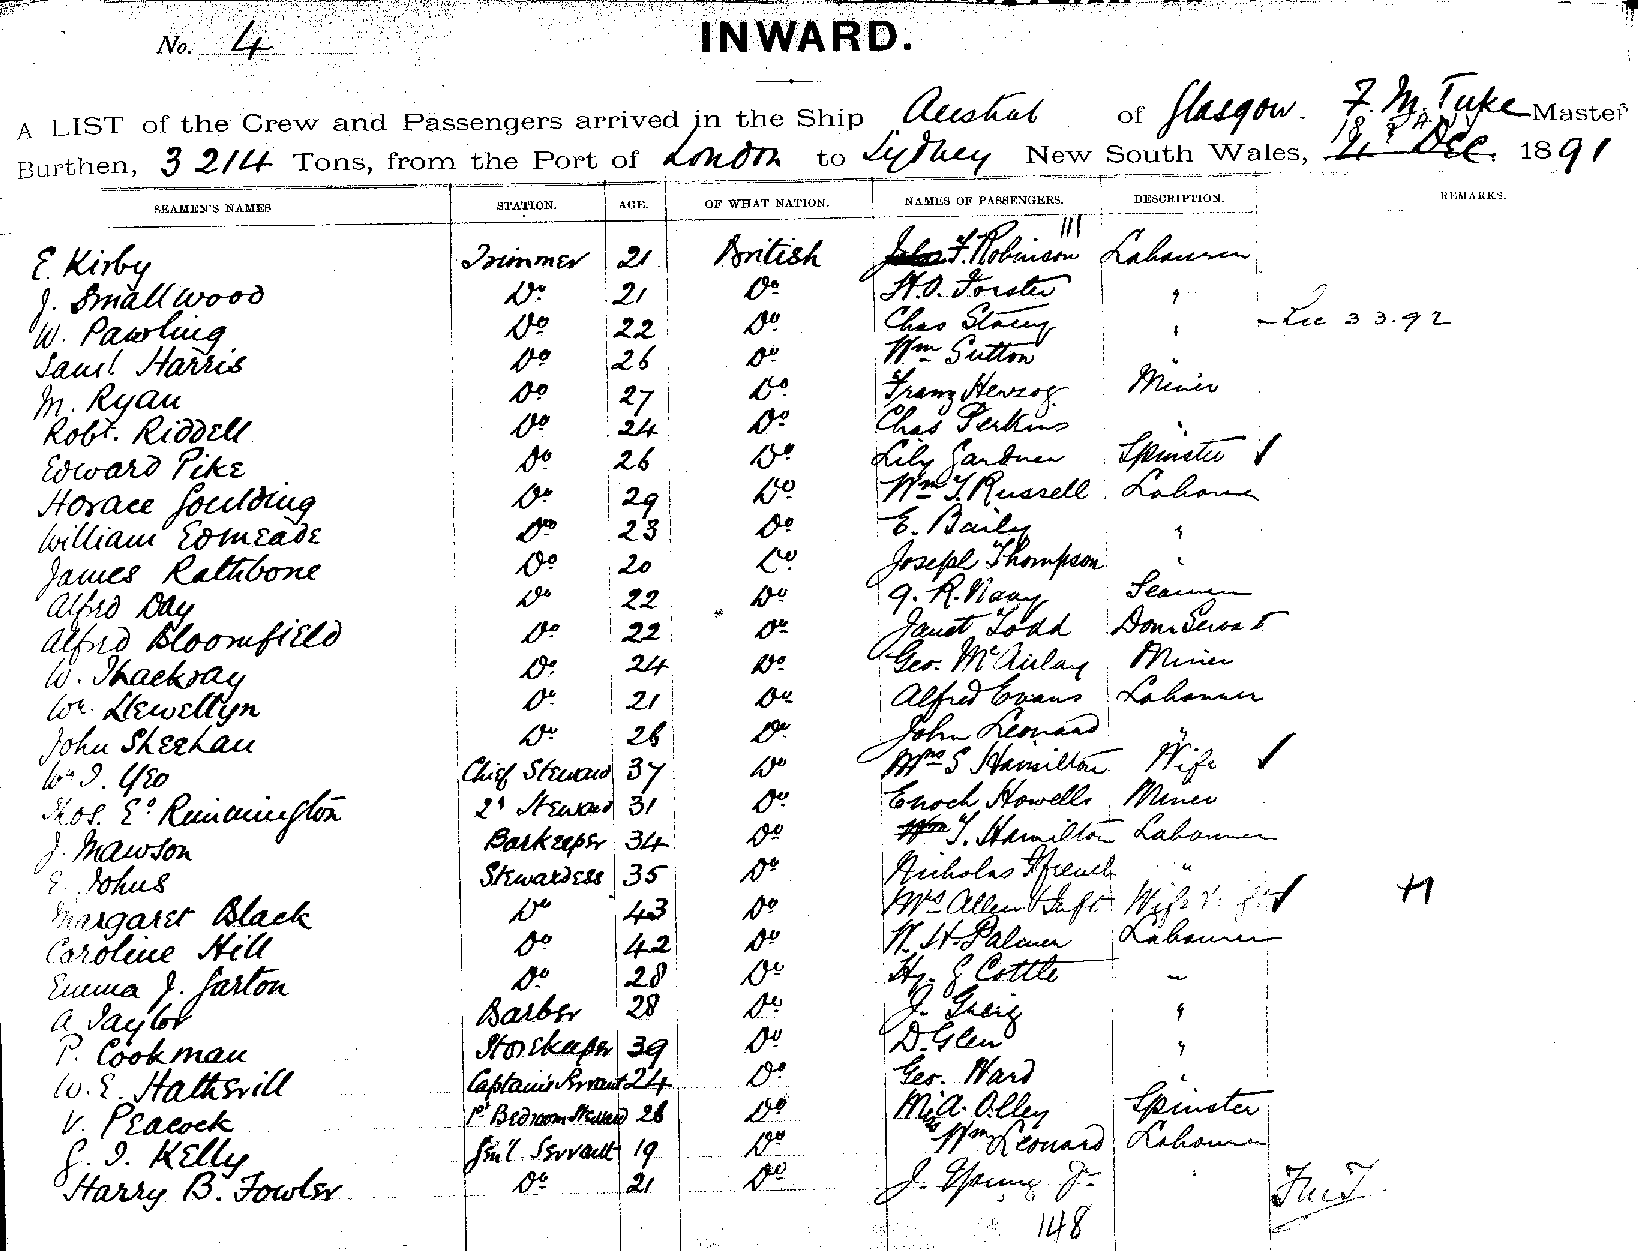 No. 4
INWARD.
A LIST of the Crew and Passengers arrived in the Ship Austral of Glasgow. F. M. Tuke Master
Burthen, 3214 Tons, from the Port of London to Sydney New South Wales, Dec. 1891
SEAMEN'S NAMES STATION. AGE. OF WHAT NATION. NAMES OF PASSENGERS. DESCRIPTION. REMARKS.
111
E. Kirby Trimmer 21 British F. Robinson Labourer
J. Smallwood Do 21 Do H.O. Forster "
W. Pawling Do 22 Do Chas Stacey " 3 3.92
Saml Harris Do 26 Do Wm Sutton "
M. Ryan Do 27 Do Franz Herzog Miner
Robt. Riddell Do 24 Do Chas Perkins "
Edward Pike Do 26 Do Lily Gardner Spinster ✓
Horace Goulding Do 29 Do Wm J. Russell Labourer
William Edmeade Do 23 Do E. Baily "
James Rathbone Do 20 Do Joseph Thompson "
Alfrd Day Do 22 Do Seaman
Alfrd Bloomfield Do 22 Do Janet Todd Dom. Servt
W. Thackray Do 24 Do Geo. McAulay Miner
Wm Llewellyn Do 21 Do Alfred Evans Labourer
John Sheehan Do 26 Do John Leonard "
Wm J. Yeo Chief Steward 37 Do Mrs S Hamilton Wife ✓
Thos. Ed Remmington 2d Steward 31 Do Enoch Howells Miner
J. Mawson Barkeeper 34 Do T. Hamilton Labourer
E. Johns Stewardess 35 Do Nicholas Ffrench "
Margaret Black Do 43 Do Mrs Allen & Inft Wife & ✓
Caroline Hill Do 42 Do W. H. Palmer Labourer
Emma J. Garton Do 28 Do Hy. G Cottle "
A Taylor Barber 28 Do J. Greig "
P. Cookman Storekeeper 39 Do D. Glen "
W. E. Hatherill Captain's Servant 24 Do Geo. Ward "
V. Peacock Bedroom Steward 26 Do M. A. Olley Spinster
G. J. Kelly Genl Servant 19 Do Wm Leonard Labourer
Harry B. Fowler Do 21 Do J. Young Jr "
148